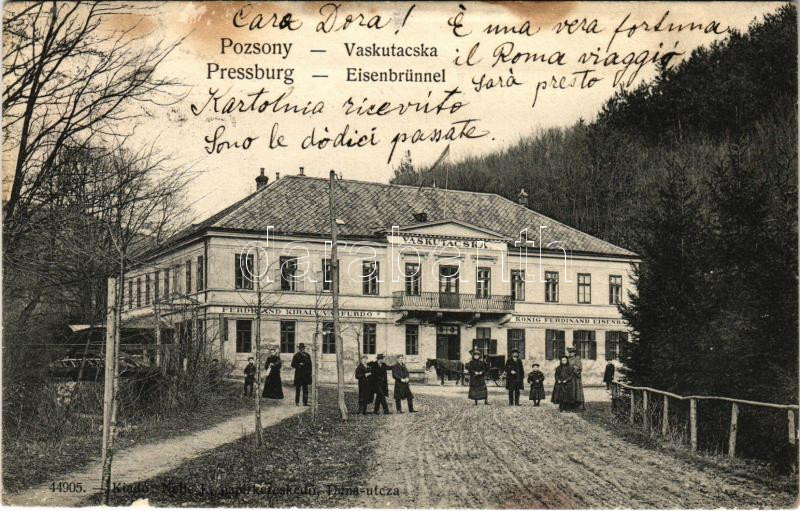 Cara Dora! È una vera fortuna
il Roma viaggió
sarà presto
Pozsony — Vaskutacska
Pressburg — Eisenbrünnel
Kartolnia ricevúto
Sono le dòdici passate.
VASKUTACSKA
FERDINAND KIRÁLY VASFÜRDŐ
KÖNIG FERDINAND EISENBA
darabanth
44905. — Kiadó: papirkereskedő, Duna-utcza